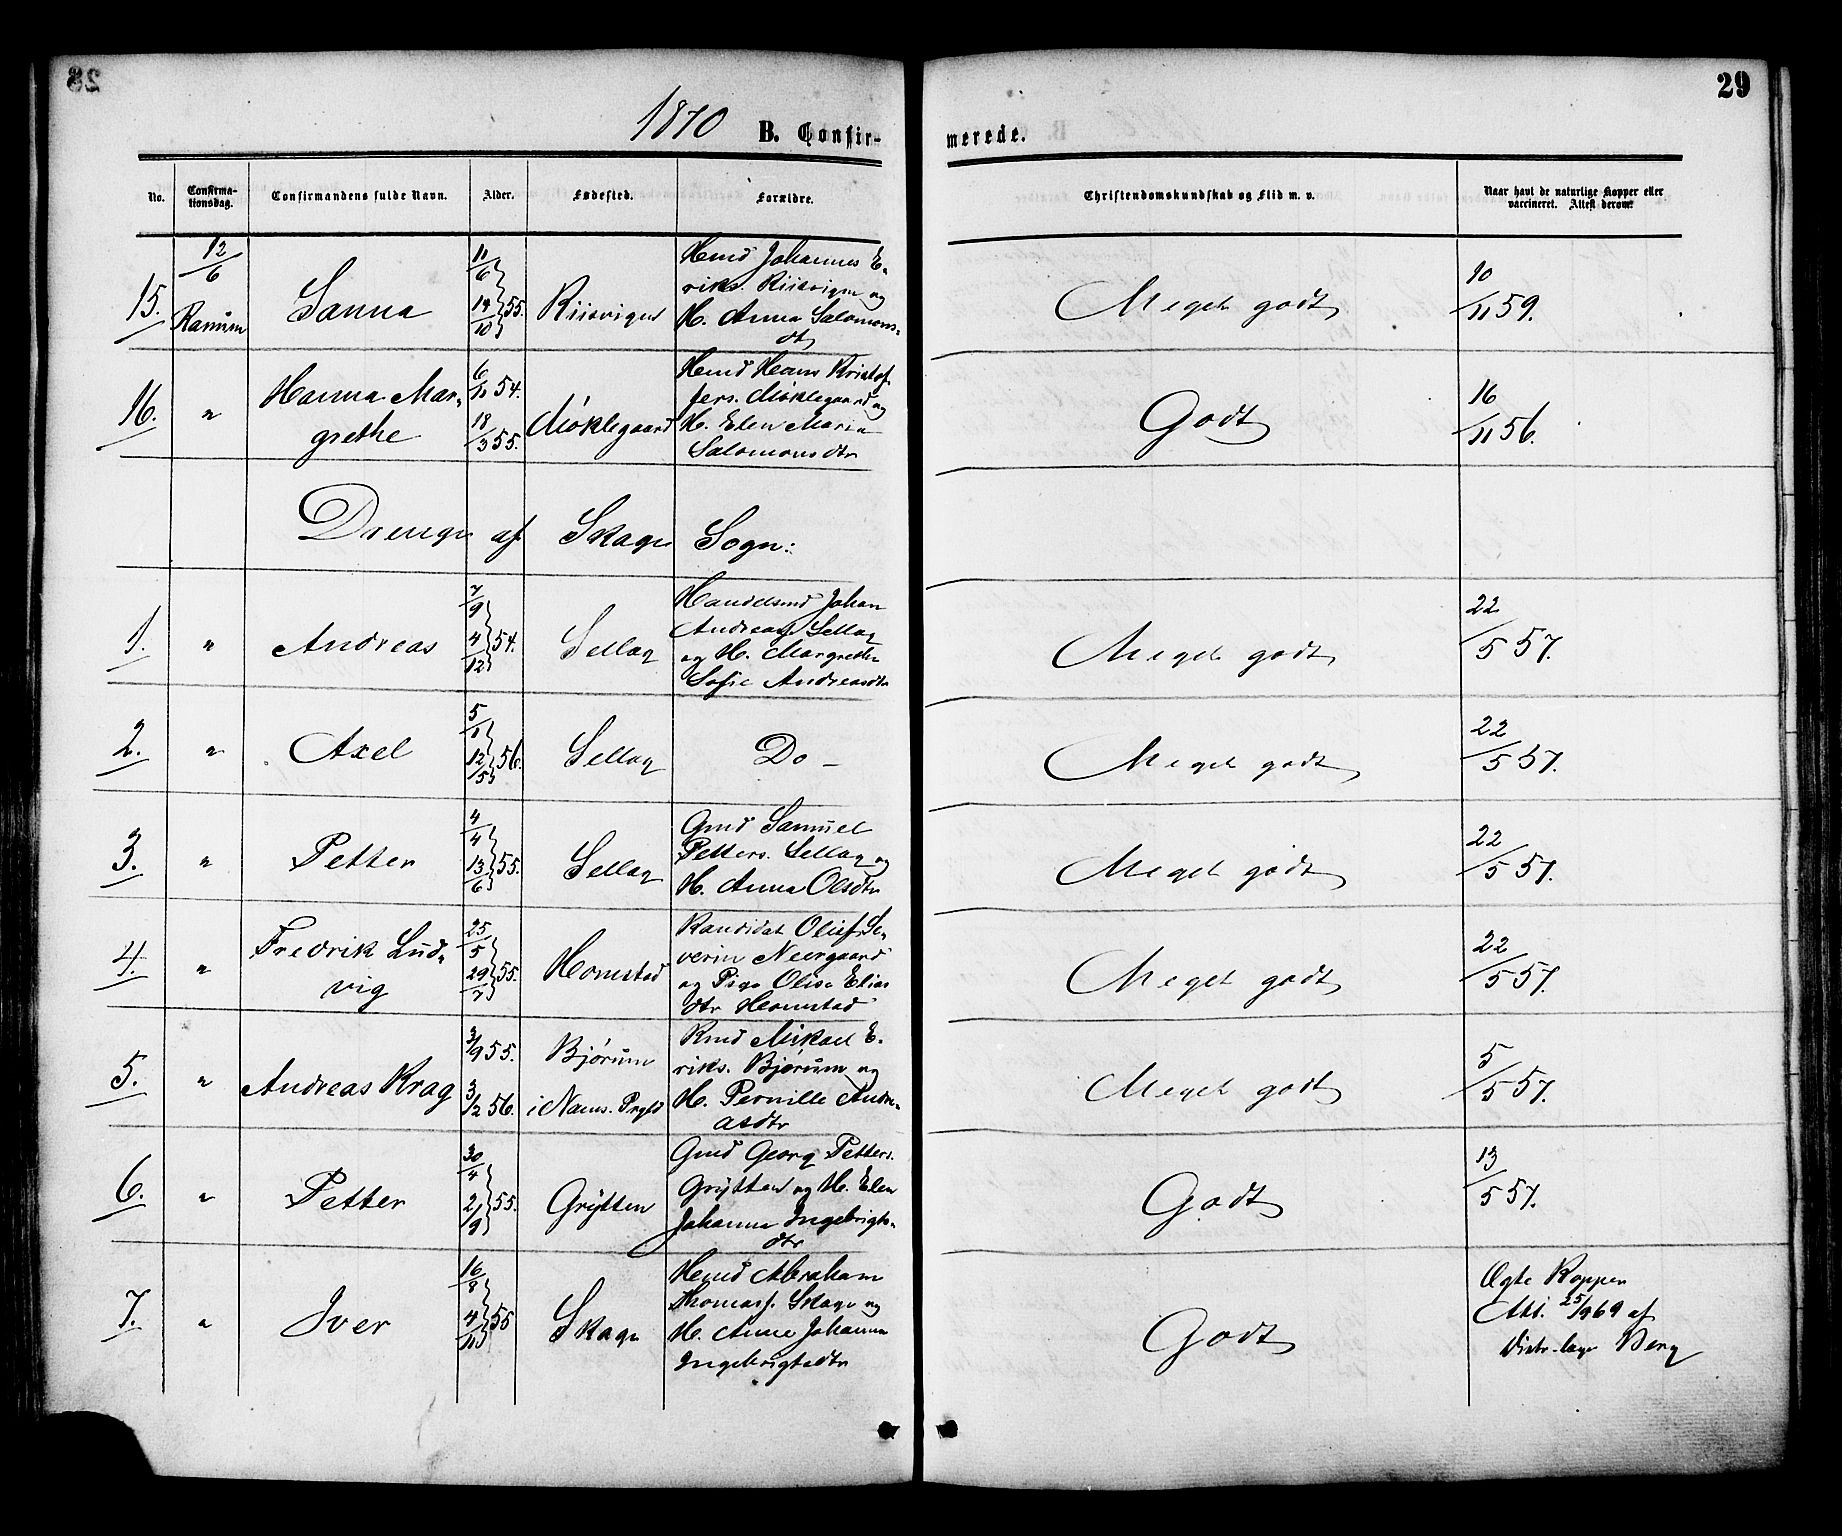 28
29
1870 B. Confir-
merede.
No. Confirma-
tionsdag. Confirmandens fulde Navn. Alder. Fødested. Forældre. Christendomskundskab og Flid m. v. Naar havt de naturlige Kopper eller
vaccineret. Attest derom.
15. 12/6 Ranum Sanna 11/6 14/10 55. Riisvigen Hmd Johannes E-
riks. Riisvigen og
H. Anna Salomons-
dtr Meget godt 10/11 59.
16. " Hanna Mar-
grethe 6/11 54. 18/3 55. Møklegaard Hmd Hans Kristof-
fers. Møklegaard og
H. Elen Maria
Salomonsdtr Godt 16/11 56.
Drenge af Skage Sogn:
1. " Andreas 7/9 4/12 54. Sellæg Handelsmd Johan
Andreas Sellæg
og H. Margrethe
Sofie Andreasdtr Meget godt 22/5 57.
2. " Axel 5/1 12/5 56. Sellæg Do - Meget godt 22/5 57.
3. " Petter 4/4 13/6 55. Sellæg Gmd Samuel
Petters. Sellæg og
H. Anna Olsdtr Meget godt 22/5 57.
4. " Fredrik Lud-
vig 25/5 29/7 55. Homstad Kandidat Oluf Se-
verin Neergaard
og Pige Olise Elias
dtr Homstad Meget godt 22/5 57.
5. " Andreas Krag 3/9 55. 3/2 56. Bjørum
i Nams. Prgld Kmd Mikael E-
riks. Bjørum og
H. Pernille Andre-
asdtr Meget godt 5/5 57.
6. " Petter 30/4 2/9 55. Grytten Gmd Georg Petters.
Grytten og H. Elen
Johanna Ingebrigts-
dtr Godt 13/5 57.
7. " Iver 16/8 4/11 55 Skage Hmd Abraham
Thomass. Skage og
H. Anne Johanna
Ingebrigtsdtr Godt Ægte Kopper
Att. 25/9 69 af
Distr. læge Berg